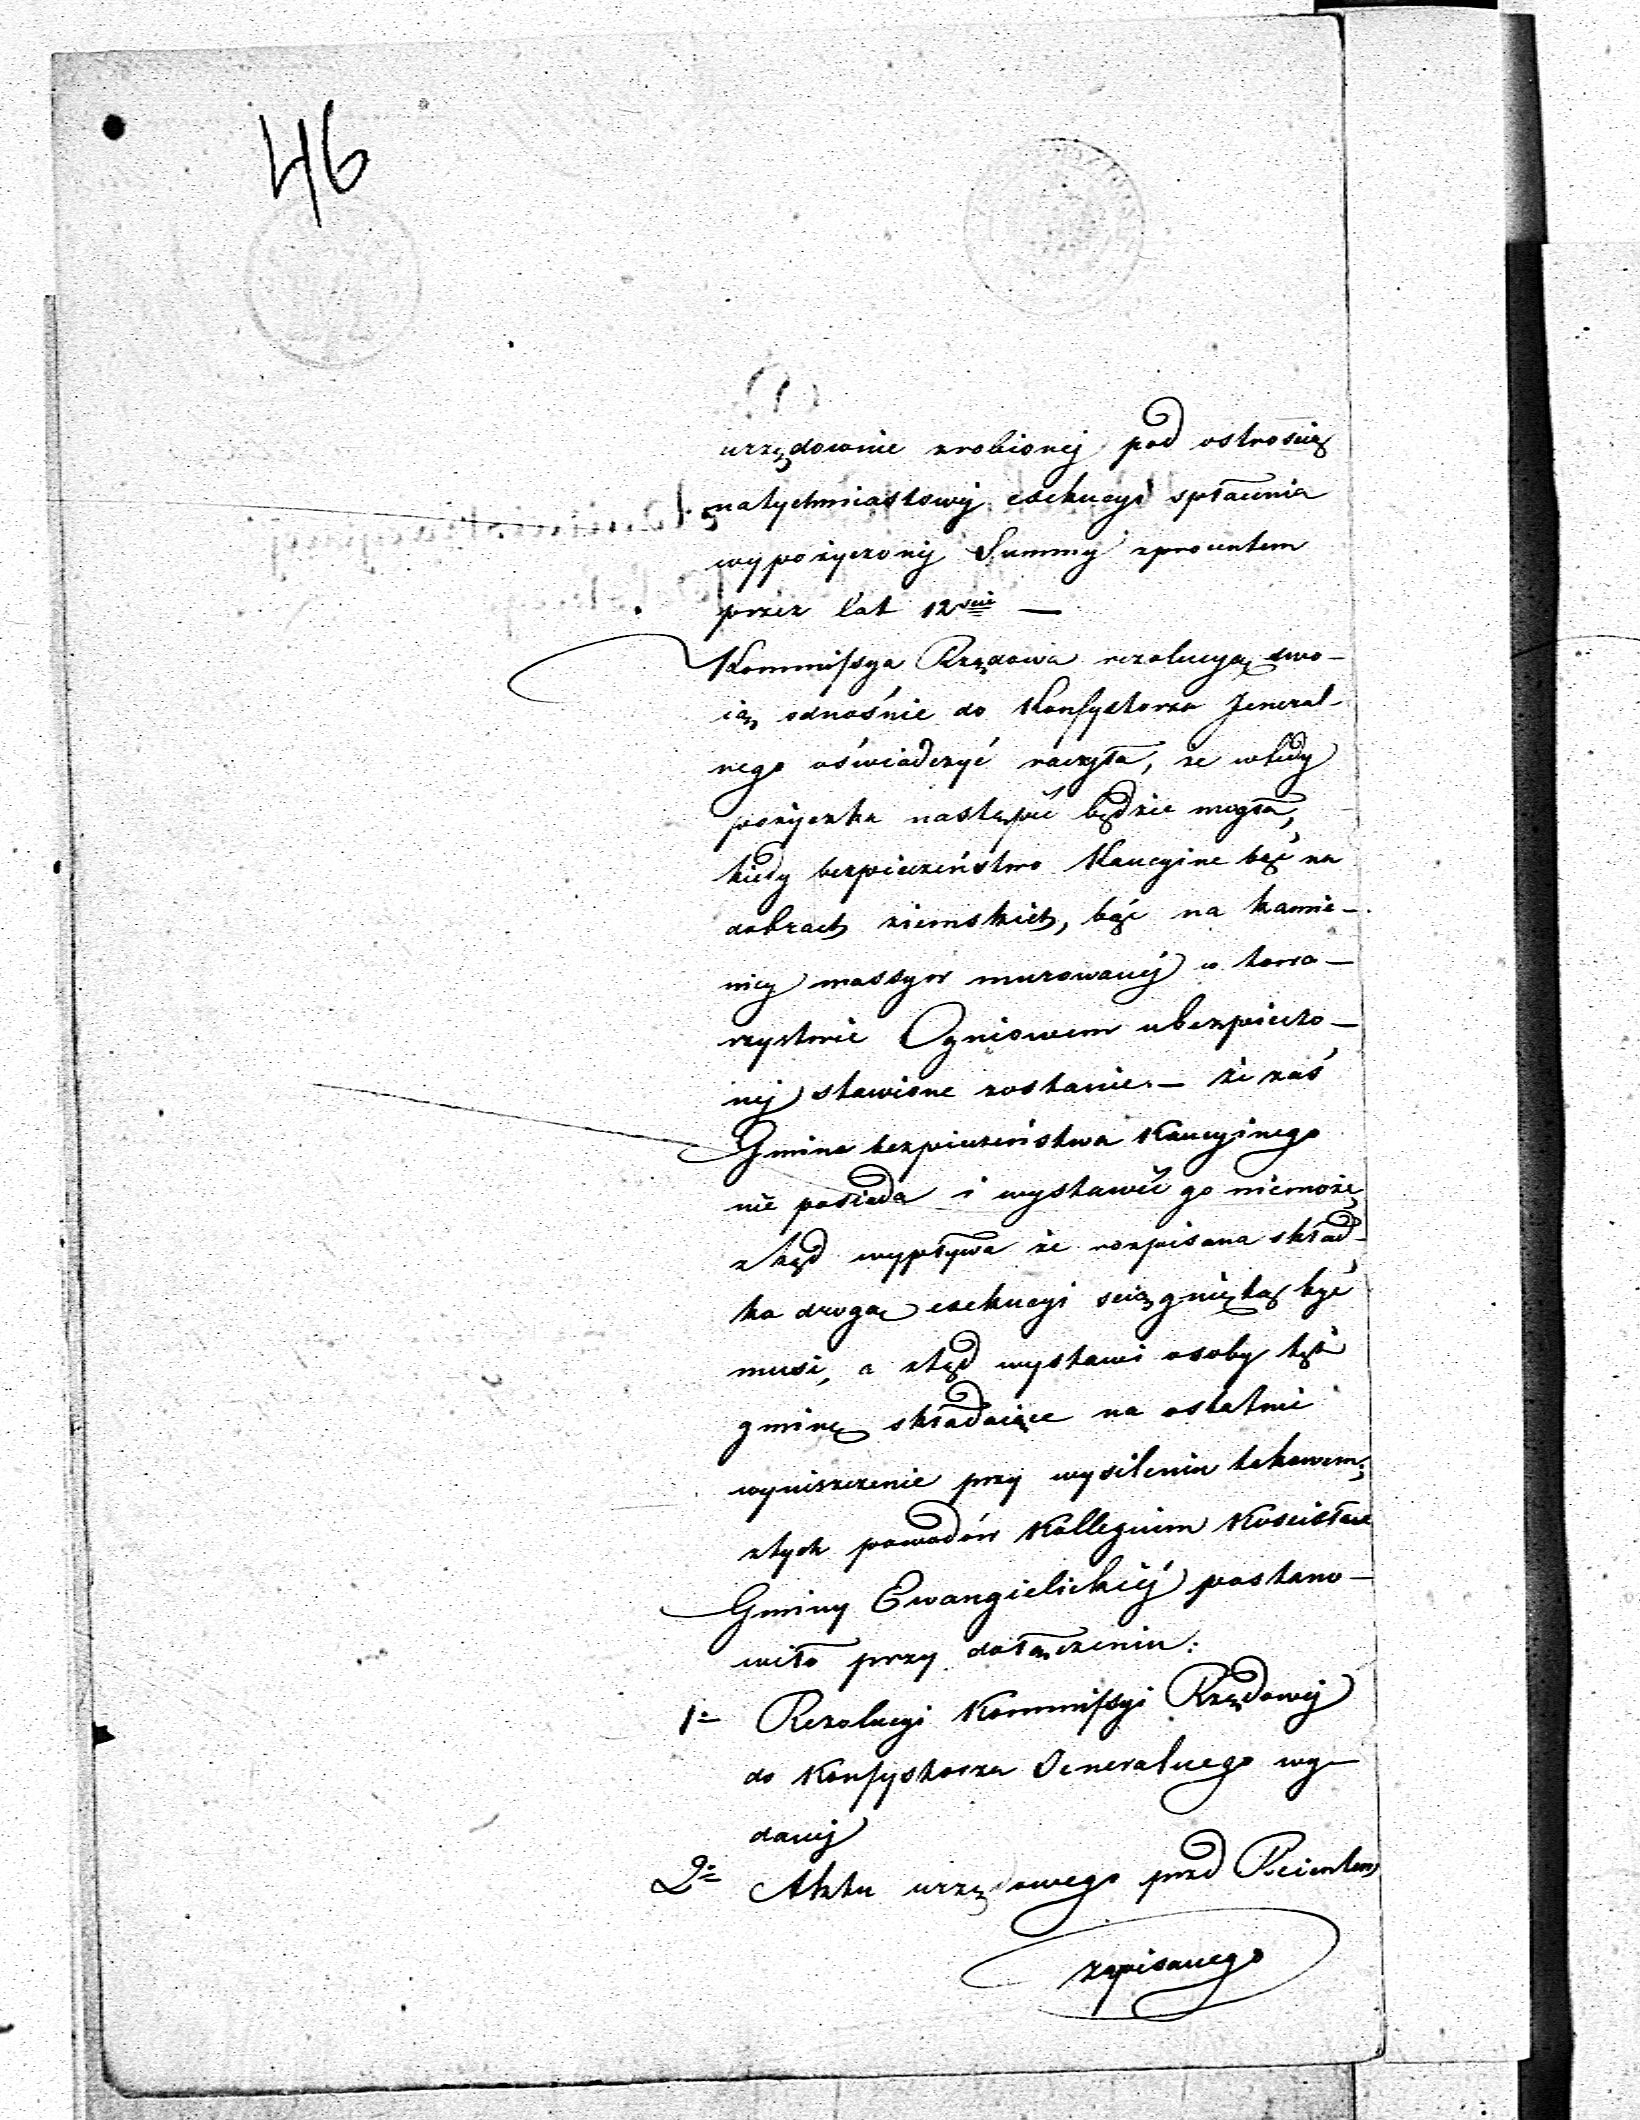 46
urzędownie zrobionej pod ostrością
natychmiastowej exekucyi spłacenia
wypożyczonej Summy z procentem
przez lat 12
Kommissya Rządowa rezolucyą swo-
ią odnośnie do Konsystorza Jeneral-
nego oświadczyć raczyła, że wtedy
pożyczka nastąpić będzie mogła,
kiedy bezpieczeństwo Kaucyine bąć na
dobrach ziemskich, bąć na kamie-
nicy massyw murowanej w towa-
rzystwie Ogniowem ubezpieczo-
nej stawione zostanie. — że zaś
Gmina bezpieczeństwa Kaucyinego
nie posiada i wystawić go niemoże,
ztąd wypływa że rozpisana skład-
ka drogą exekucyi sciągniętą być
musi, a ztąd wystawi osoby też
gminę składaiące na ostatnie
wyniszczenie przy wysileniu takowem;
ztych powodów Kollegium Kościelne
Gminy Ewangielickiej postano-
wiło przy dołączeniu:
1° Rezolucyi Kommissyi Rządowej
do Konsystorza Jeneralnego wy-
danej
2° Aktu urzędowego przed Reientem
zapisanego